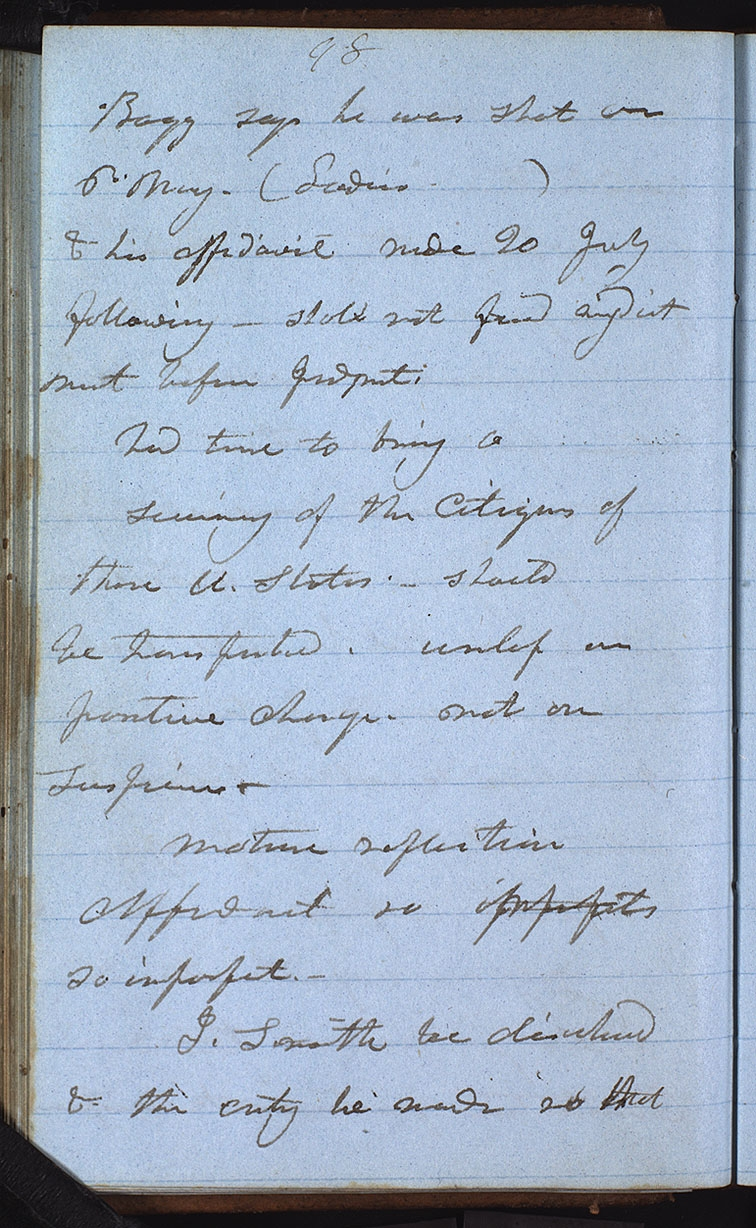 98
Bogg says he was shot on
6th May. (Sadis )
& his affidavit made 20 July
following — stole not find indict
ment before Judgmt.
had time to bring a
of the Citizens of
these U. States. — should
be transported. unless on
positive charge. not on
Suspicion —
mature reflection
Affidavit so imperfets
so imperfet. —
J. Smith be discharged
& the entry be made so that